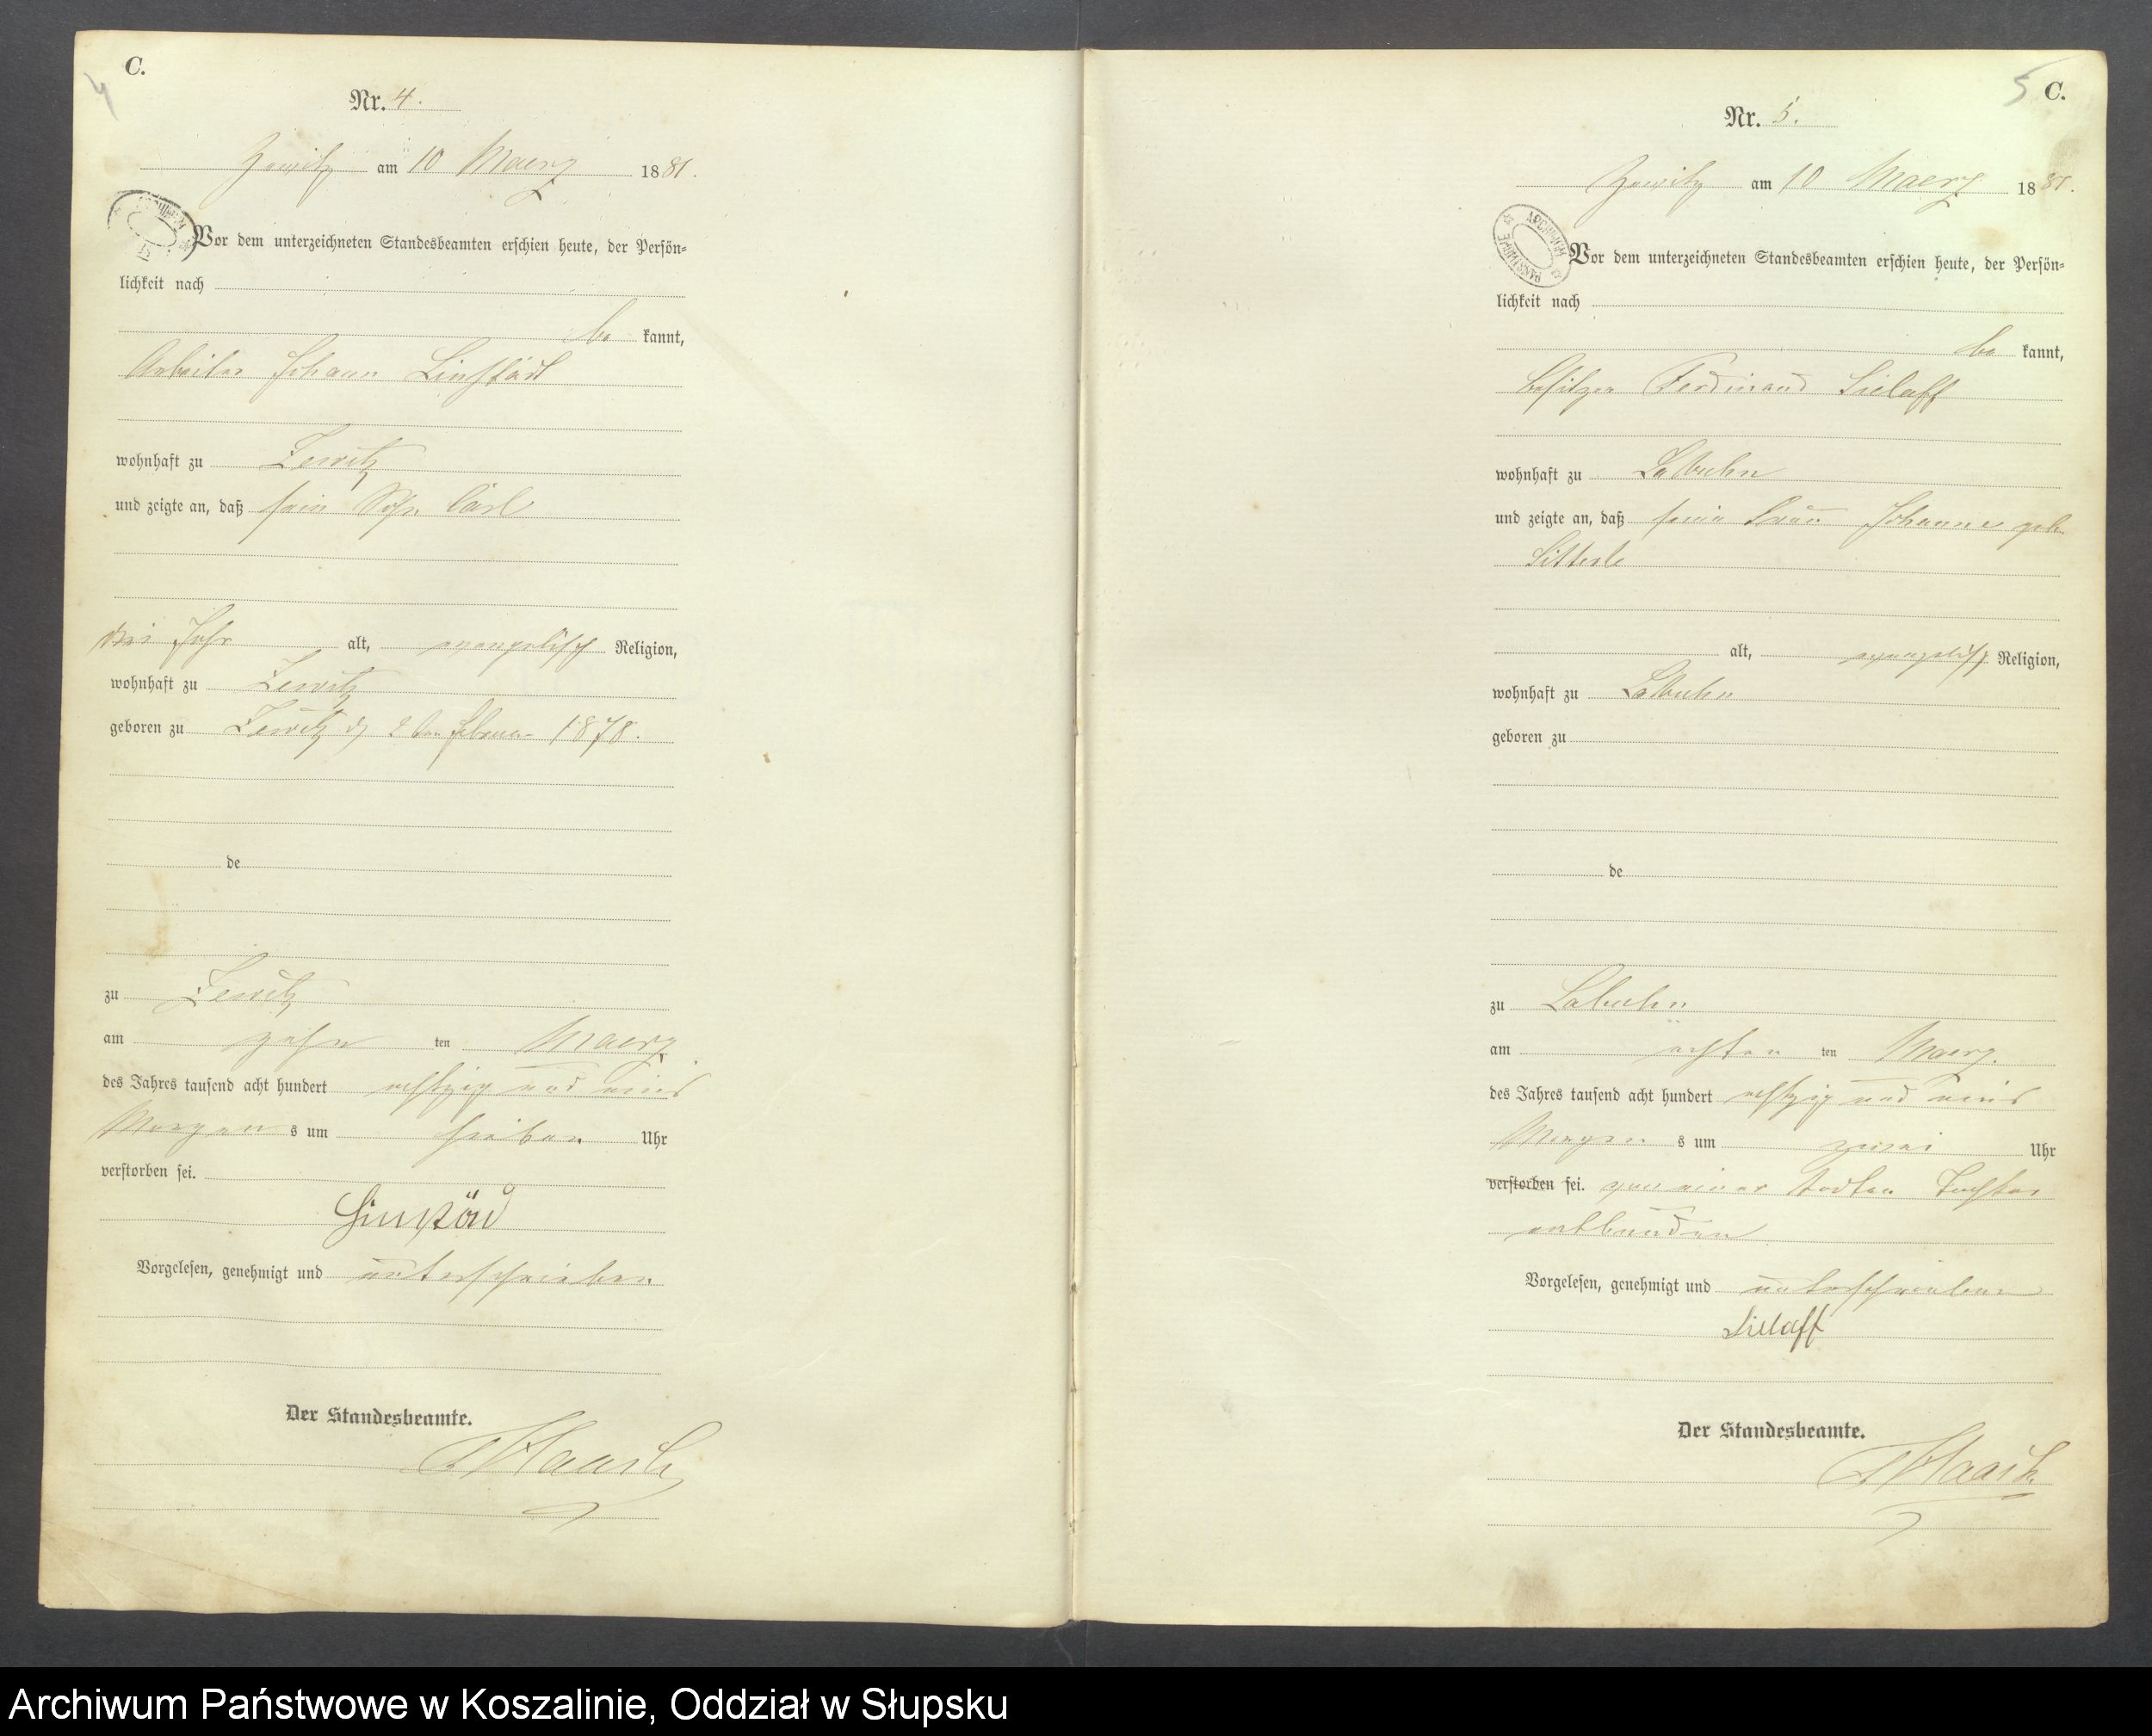 C.
4
Nr. 4.
Zewitz am 10 Maerz 1881.
Vor dem unterzeichneten Standesbeamten erschien heute, der Persön-
lichkeit nach
be kannt,
Arbeiter Johann
wohnhaft zu Zewitz
und zeigte an, daß sein Sohn Carl
drei Jahr alt, evangelisch Religion,
wohnhaft zu Zewitz
geboren zu Zewitz Februar 1878.
de
zu Zewitz
am zehn ten Maerz
des Jahres tausend acht hundert achtzig und eins
Morgen s um sieben Uhr
verstorben sei.
Vorgelesen, genehmigt und unterschrieben
Der Standesbeamte.
5 C.
Nr. 5.
Zewitz am 10 Maerz 1881.
Vor dem unterzeichneten Standesbeamten erschien heute, der Persön-
lichkeit nach
be kannt,
Besitzer Ferdinand Sielaff
wohnhaft zu Labuhn
und zeigte an, daß seine Frau Johanne geb
alt, evangelisch Religion,
wohnhaft zu Labuhn
geboren zu
de
zu Labuhn
am achten ten Maerz.
des Jahres tausend acht hundert achtzig und eins
Morgen s um zwei Uhr
verstorben sei. von einer todten Tochter
entbunden
Vorgelesen, genehmigt und unterschrieben
Sielaff
Der Standesbeamte.
Archiwum Państwowe w Koszalinie, Oddział w Słupsku